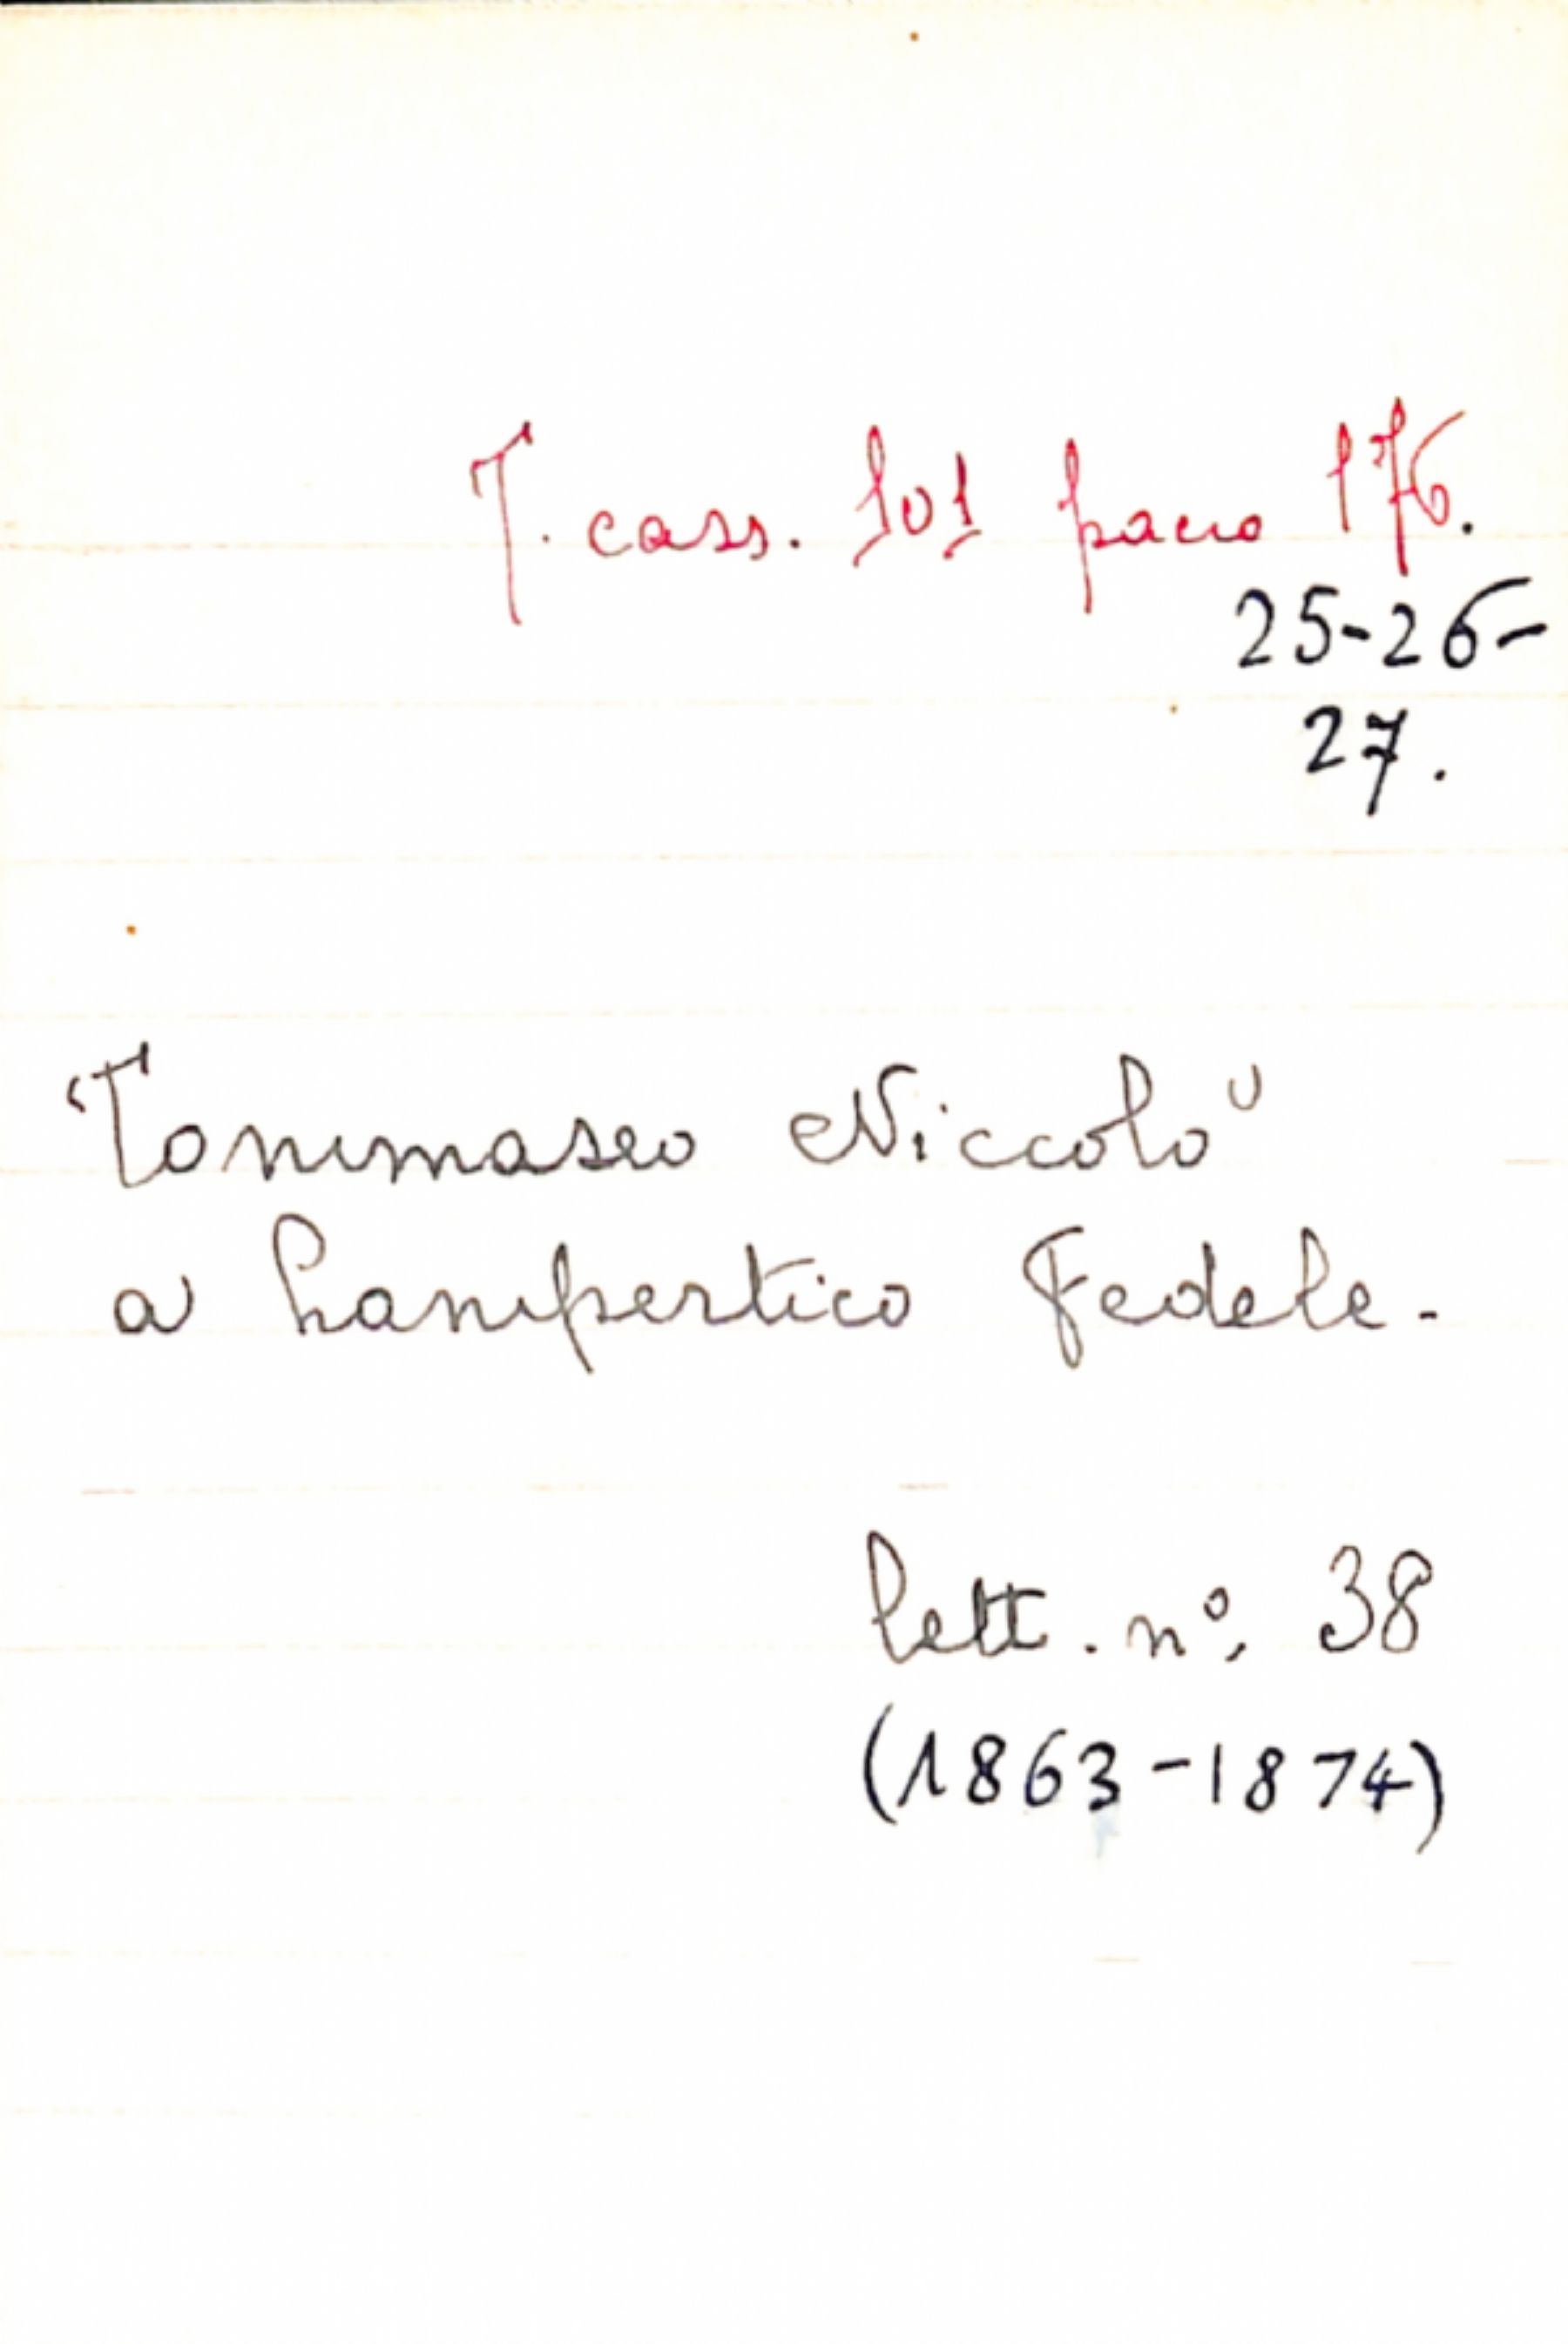 T. cass. 101 pacco 176.
25-26-
27.
"Tommaseo Niccolo"
a Lampertico Fedele.
lett. n°. 38
(1863-1874)